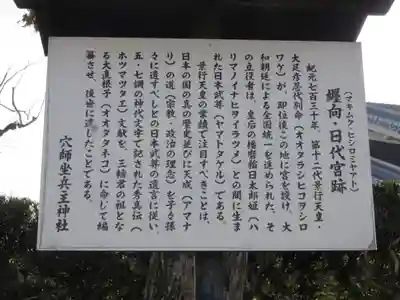 (マキムク・ヒシロミヤアト)
纒向・日代宮跡
紀元七百三十年、第十二代景行天皇・
大足彦忍代別命(オオタラシヒコヲシロ
ワケ)が、即位後この地に宮を設け、大
和朝廷による全国統一を決められた。そ
の立役者は、皇后の播磨稲日太郎姫(ハ
リマノイナヒヲイラツメ)との間に生ま
れた日本武尊(ヤマトタケル)である。
景行天皇の業績で注目すべきことは、
日本の国の真の歴史並びに天成(アマナ
リ)の道(宗教・政治の理念)を子々孫
々に遺すべしとの日本武尊の遺言に従い、
五・七調の神代文字で記された秀真伝(
ホツマツタエ)文献を、三輪君の祖とな
る大直根子(オオタタネコ)に命じて編
纂させ、後世に遺したことである。
穴師坐兵主神社